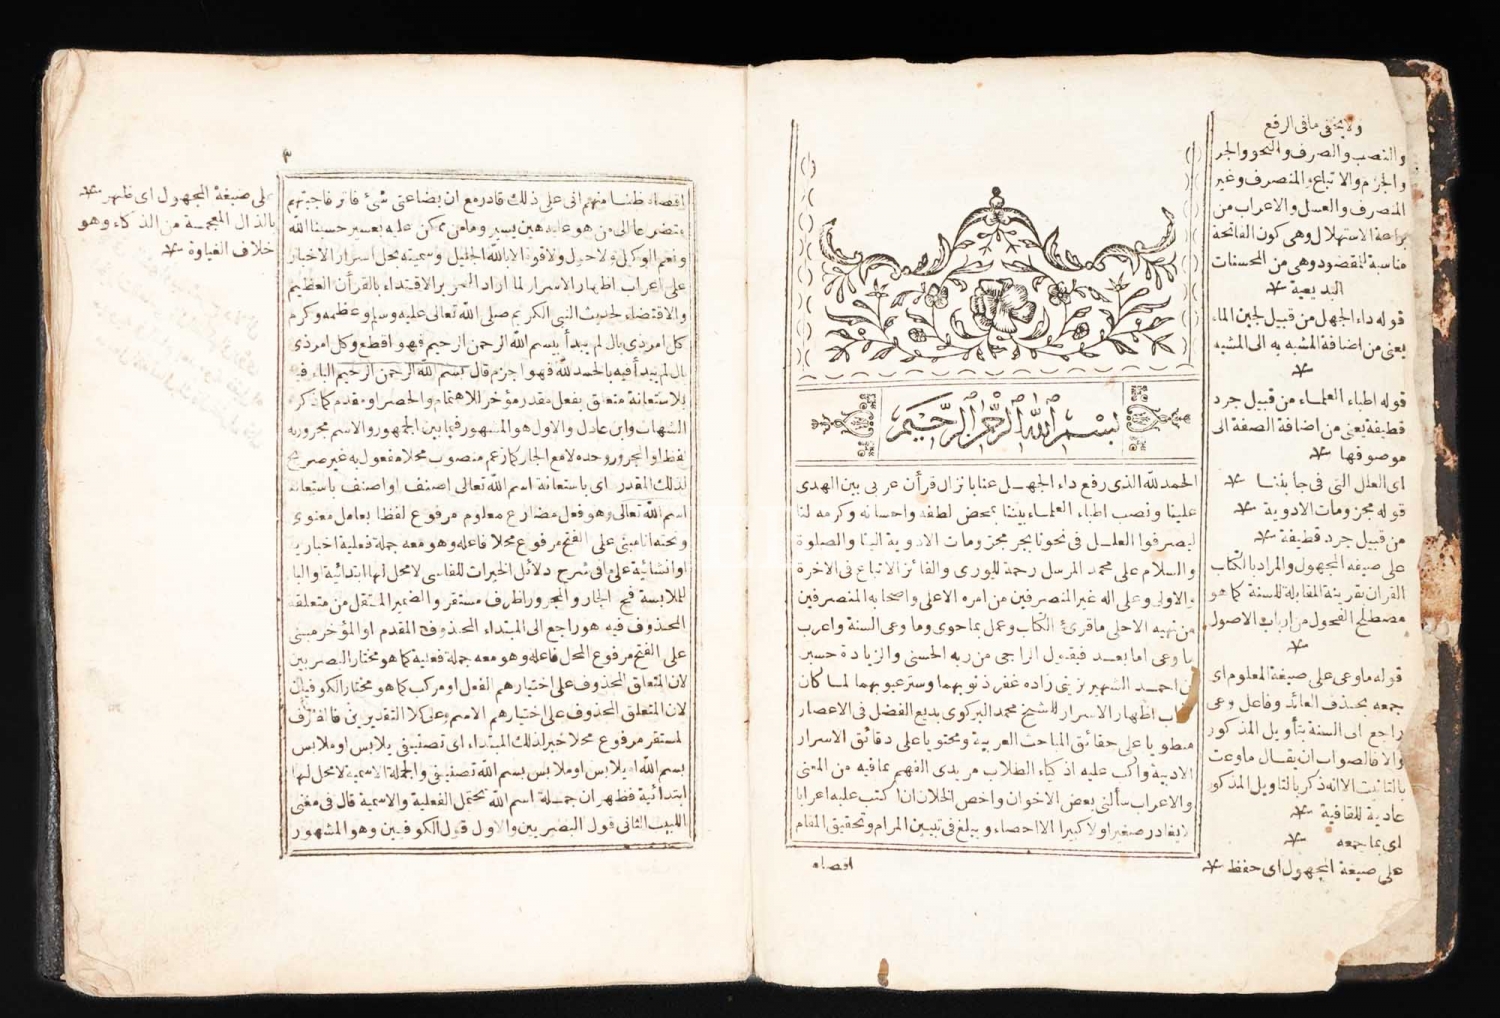 ولا يخفى ما فى الرفع
والنصب والصرف والنحو والجر
والجزم والاتباع والمنصرف وغير
المنصرف والعسل والاعراب من
براعة الاستهلال وهى كون الفاتحة
مناسبة للمقصود وهى من المحسنات
البديعية
قوله داء الجهل من قبيل لجين الماء
يعنى من اضافة المشبه به الى المشبه
قوله اطباء العلماء من قبيل جرد
قطيفة يعنى من اضافة الصفة الى
موصوفها
اى العلل التى فى جانبنا
قوله مجزومات الادوية
من قبيل جرد قطيفة
على صيغة المجهول والمراد بالكتاب
القرآن بقرينة المقابلة للسنة كما هو
مصطلح الفحول من ارباب الاصول
قوله ما وعى على صيغة المعلوم اى
جمعه بحذف العائد وفاعل وعى
راجع الى السنة بتأويل المذكور
والا فالصواب ان يقال ما وعت
بالتانيث الا انه ذكر بالتاويل المذكور
عادية للقافية
اى بما جمعه
على صيغة المجهول اى حفظ
بسم الله الرحمن الرحيم
الحمد لله الذى رفع داء الجهل عنا بانزال قرأن عربى بين الهدى
علينا ونصب اطباء العلماء بيننا بمحض لطفه واحسانه وكرمه لنا
ليصرفوا العلل فى نحونا بجر مجزومات الادوية الينا والصلوة
والسلام على محمد المرسل رحمة للورى والفائز الاتباع فى الاخرة
والاولى وعلى اله غير المنصرفين من امره الاعلى واصحابه المنصرفين
من نهيه الاحلى ما قرئ الكتاب وعمل بما حوى وما وعى السنة واعرب
ما وعى اما بعد فيقول الراجى من ربه الحسنى والزيادة حسين
بن احمد الشهير زينى زاده غفر ذنوبهما وسترعيوبهما لما كان
كتاب اظهار الاسرار للشيخ محمد البركوى بديع الفضل فى الاعصار
منطويا على حقائق المباحث العربية ومحتويا على دقائق الاسرار
الادبية واكب عليه اذكياء الطلاب مريدى الفهم بما فيه من المعنى
والاعراب سألنى بعض الاخوان واخص الخلان ان اكتب عليه اعرابا
لا يغادر صغيرا ولا كبيرا الا احصاه ويبلغ فى تبيين المرام وتحقيق المقام
اقصاه
٣
اقصاه ظنا منهم انى على ذلك قادر مع ان بضاعتى شئ فاتر فاجبتهم
متضرعا الى من هو عليه هين يسير وما من ممكن عليه بعسير حسبنا الله
ونعم الوكيل ولا حول ولا قوة الا بالله الجليل وسميته بحل اسرار الاخيار
على اعراب اظهار الاسرار لما اراد الاقتداء بالقرأن العظيم
والاقتضاء لحديث النبى الكريم صلى الله تعالى عليه وسلم وعظمه وكرم
كل امر ذى بال لم يبدأ ببسم الله الرحمن الرحيم فهو اقطع وكل امر ذى
بال لم يبدأ فيه بالحمد لله فهو اجزم قال بسم الله الرحمن الرحيم الباء فيه
للاستعانة متعلق بفعل مقدر مؤخر للاهتمام والحصر او مقدم كما ذكره
الشهاب وابن عادل والاول هو المشهور فيما بين الجمهور والاسم مجرور به
لفظا او المجرور وحده لا مع الجار كما زعم منصوب محلا مفعول به غير صريح
لذلك المقدر اى باستعانة اسم الله تعالى اصنف او اصنف باستعانة
اسم الله تعالى وهو فعل مضارع معلوم مرفوع لفظا بعامل معنوى
وتحته انا مبنى على الفتح مرفوع محلا فاعله وهو معه جملة فعلية اخبارية
او انشائية على ما فى شرح دلائل الخيرات للفاسى لا محل لها ابتدائية والباء
للملابسة فح الجار والمجرور ظرف مستقر والضمير المنتقل من متعلقه
المحذوف فيه هو راجع الى المبتداء المحذوف المقدم او المؤخر مبنى
على الفتح مرفوع المحل فاعله وهو معه جملة فعلية كما هو مختار البصريين
لان المتعلق المحذوف على اختيارهم الفعل او مركب كما هو مختار الكوفيين
لان المتعلق المحذوف على اختيارهم الاسم وعلى كلا التقديرين فالظرف
المستقر مرفوع محلا خبر لذلك المبتداء اى تصنيفى يلابس او ملابس
بسم الله او يلابس او ملابس بسم الله تصنيفى والجملة الاسمية لا محل لها
ابتدائية فظهر ان جملة بسم الله تحتمل الفعلية والاسمية قال فى مغنى
اللبيب الثانى قول البصريين والاول قول الكوفيين وهو المشهور
على صيغة المجهول اى ظهر
بالذال المعجمة من الذكاء وهو
خلاف الغباوة